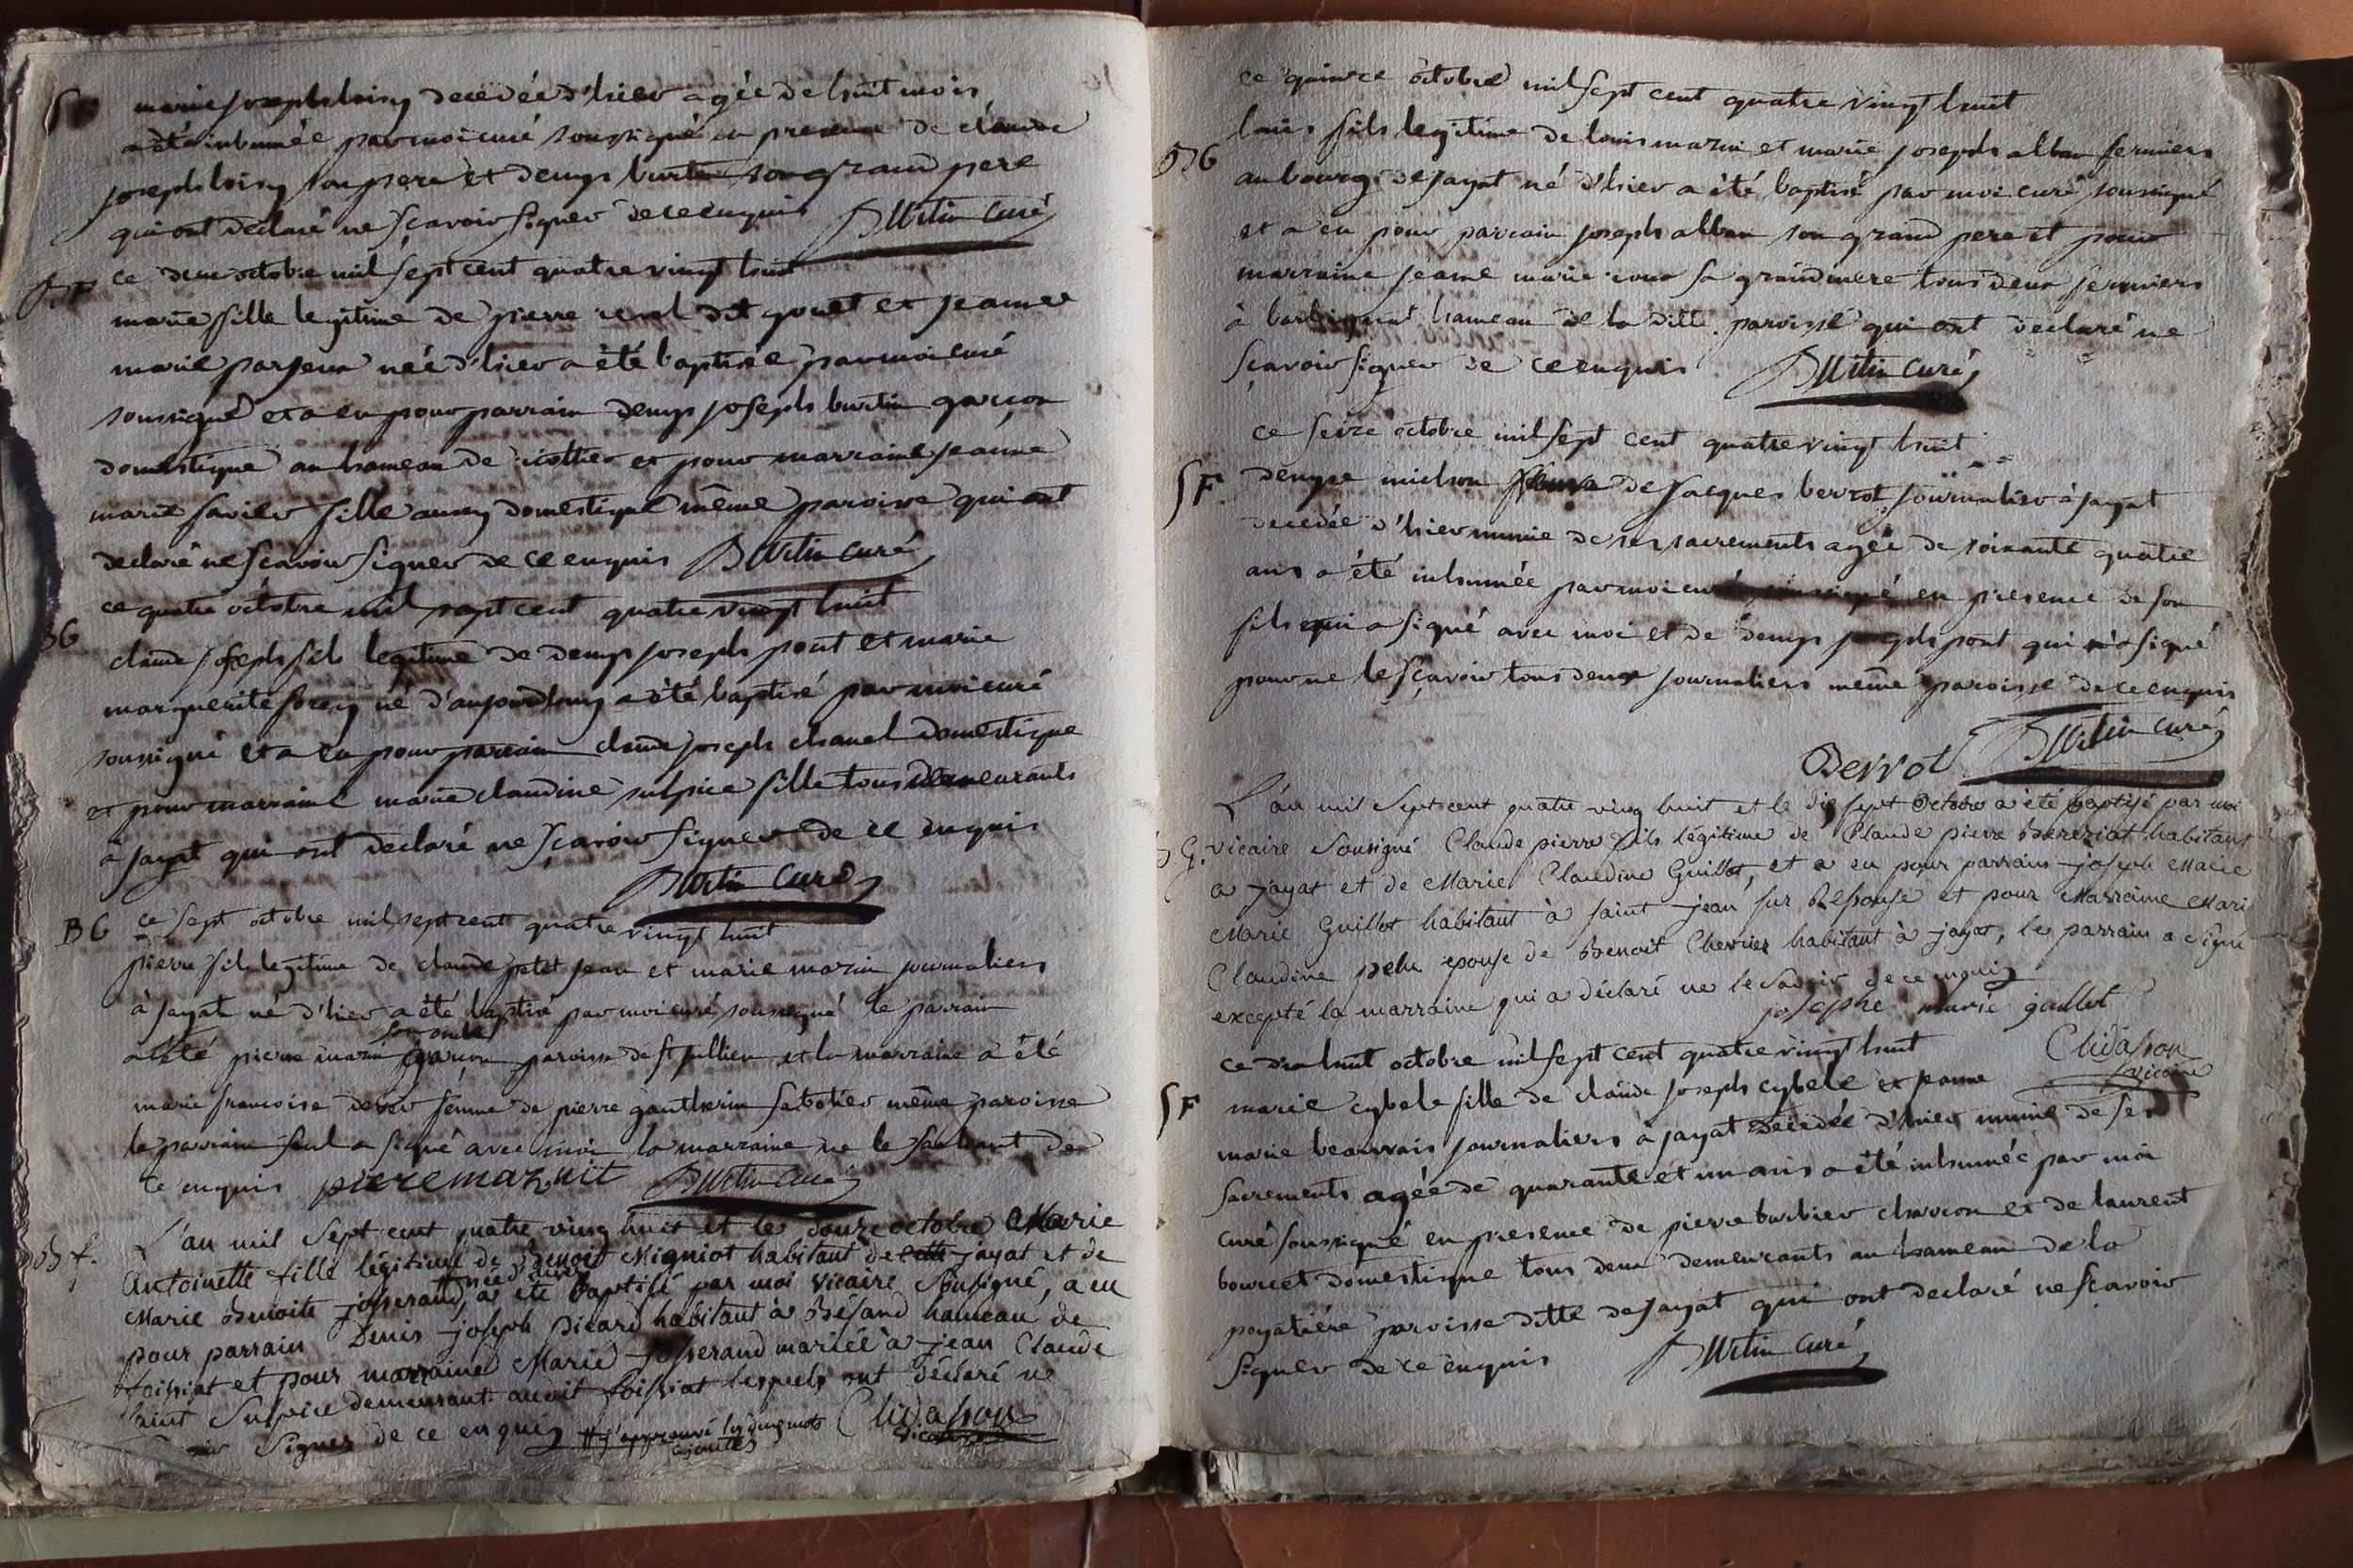 marie joseph loisy decedée d'hier agée de huit mois
a été inhumée par moi curé soussigné en presence de claude
joseph loisy son pere et denys burtin son grand pere
qui ont declaré ne sçavoir signer de ce enquis Burtin curé
ce deux octobre mil sept cent quatre vingt huit
marie fille legitime de pierre revel dit gouet et jeanne
marie née d'hier a été baptisée par moi curé
soussigné et a eu pour parrain denys joseph burtin garçon
domestique au hameau de et pour marraine jeanne
marie favier fille aussy domestique même paroisse qui ont
declaré ne scavoir signer de ce enquis Burtin curé
BG
ce quatre octobre mil sept cent quatre vingt huit
claude joseph fils legitime de denys joseph pont et marie
marguerite né d'aujourdhuy a été baptisé par moi curé
soussigné et a eu pour parrain claude joseph chanel domestique
et pour marraine marie claudine sulpice fille tous demeurants
à jayat qui ont declaré ne sçavoir signer de ce enquis
Burtin curé
BG ce sept octobre mil sept cent quatre vingt huit
pierre fils legitime de claude petet jean et marie mazuir journaliers
à jayat né d'hier a été baptisé par moi curé soussigné le parrain
son oncle
a été pierre mazuir garçon paroisse de st jullien et la marraine a été
marie francoise femme de pierre gautherin sabotier même paroisse
le parrain seul a signé avec moi la marraine ne le sachant de
ce enquis piere mazuit Burtin curé
B f. L'an mil sept cent quatre ving huit et le douze octobre Marie
Antoinette fille légitime de Benoit Migniot habitant de cette jayat et de
# née d'hier
Marie Benoite josserand, a été baptisé par moi vicaire Sousigné, a eu
pour parrain Denis joseph Picard habitant à Bésand hameau de
foissiat et pour marraine Marie josserand mariée à jean Claude
saint Sulpice demeurant audit foissiat lesquels ont déclaré ne
signer de ce enquis # j'approuvé les deux mots Chidasson
ajoutés vicaire
ce quinze octobre mil sept cent quatre vingt huit
BG
louis fils legitime de louis mazuir et marie joseph alban fermiers
au bourg de jayat né d'hier a été baptisé par moi curé soussigné
et a eu pour parrain joseph alban son grand pere et pour
marraine jeanne marie roux sa grandmere tous deux fermiers
à hameau de la ditte paroisse qui ont declaré ne
sçavoir signer de ce enquis Burtin curé
ce seize octobre mil sept cent quatre vingt huit
SF
denyse michon de jacques berrot journalier à jayat
decedée d'hier munie de ses sacrements agée de soixante quatre
ans a été inhumée par moi curé soussigné en presence de son
fils qui a signé avec moi et de denys joseph pont qui n'a signé
pour ne le sçavoir tous deux journaliers même paroisse de ce enquis
Berrot Burtin curé
L'an mil sept cent quatre ving huit et le dix sept octobre a été baptisé par moi
B G. vicaire Sousigné Claude pierre fils légitime de Claude pierre Bereziat habitant
a jayat et de Marie Claudine Guillot, et a eu pour parrain joseph Marie
Marie Guillot habitant à saint jean sur Ressouse et pour Marraine Mari
Claudine pelu epouse de Benoit Chevrier habitant à jayat, le parrain a signé
excepté la marraine qui a déclaré ne le savoir de ce enquis
josephe marie guillot
Chidasson
vicaire
ce dix huit octobre mil sept cent quatre vingt huit
SF
marie cybele fille de claude joseph cybele et jeanne
marie beauvais journaliers à jayat decedée d'hier munie de ses
sacrements agée de quarante et un ans a été inhumée par moi
curé soussigné en presence de pierre barbier charron et de laurent
bourcet domestique tous deux demeurants au hameau de la
poyatiére paroisse ditte de jayat qui ont declaré ne scavoir
signer de ce enquis Burtin curé